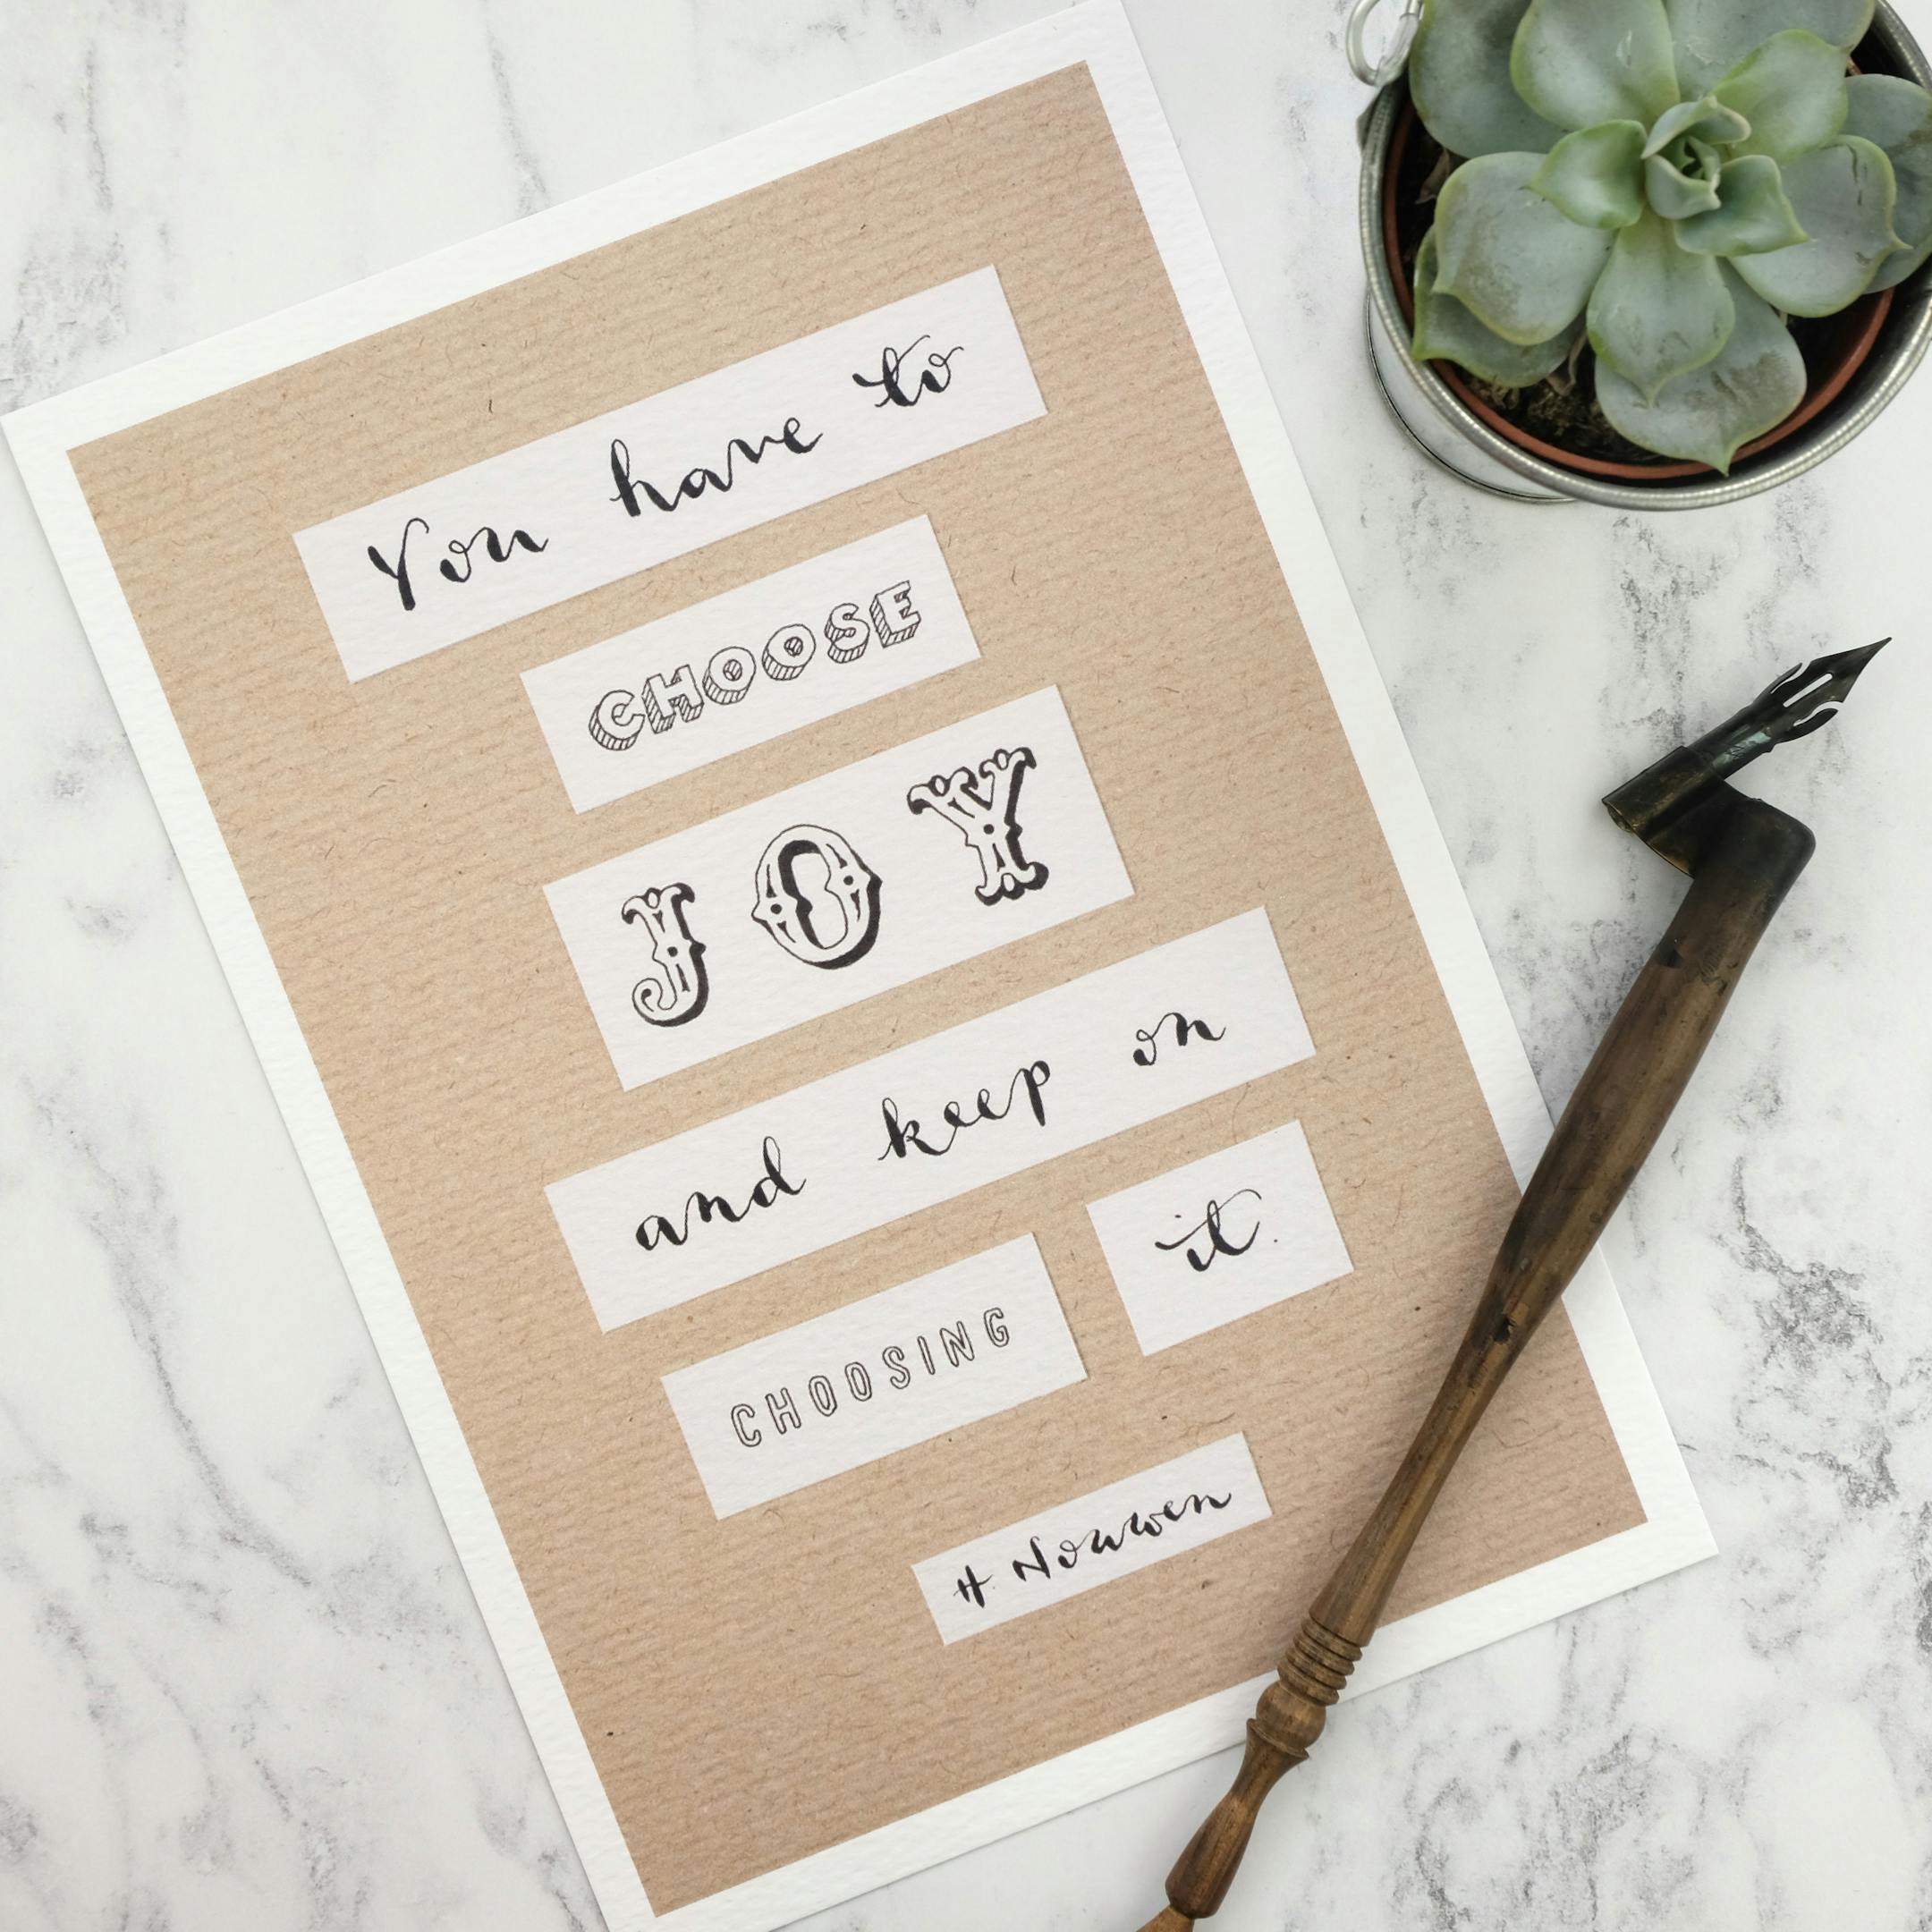 You have to
CHOOSE
JOY
and keep on
CHOOSING it.
H Nouwen